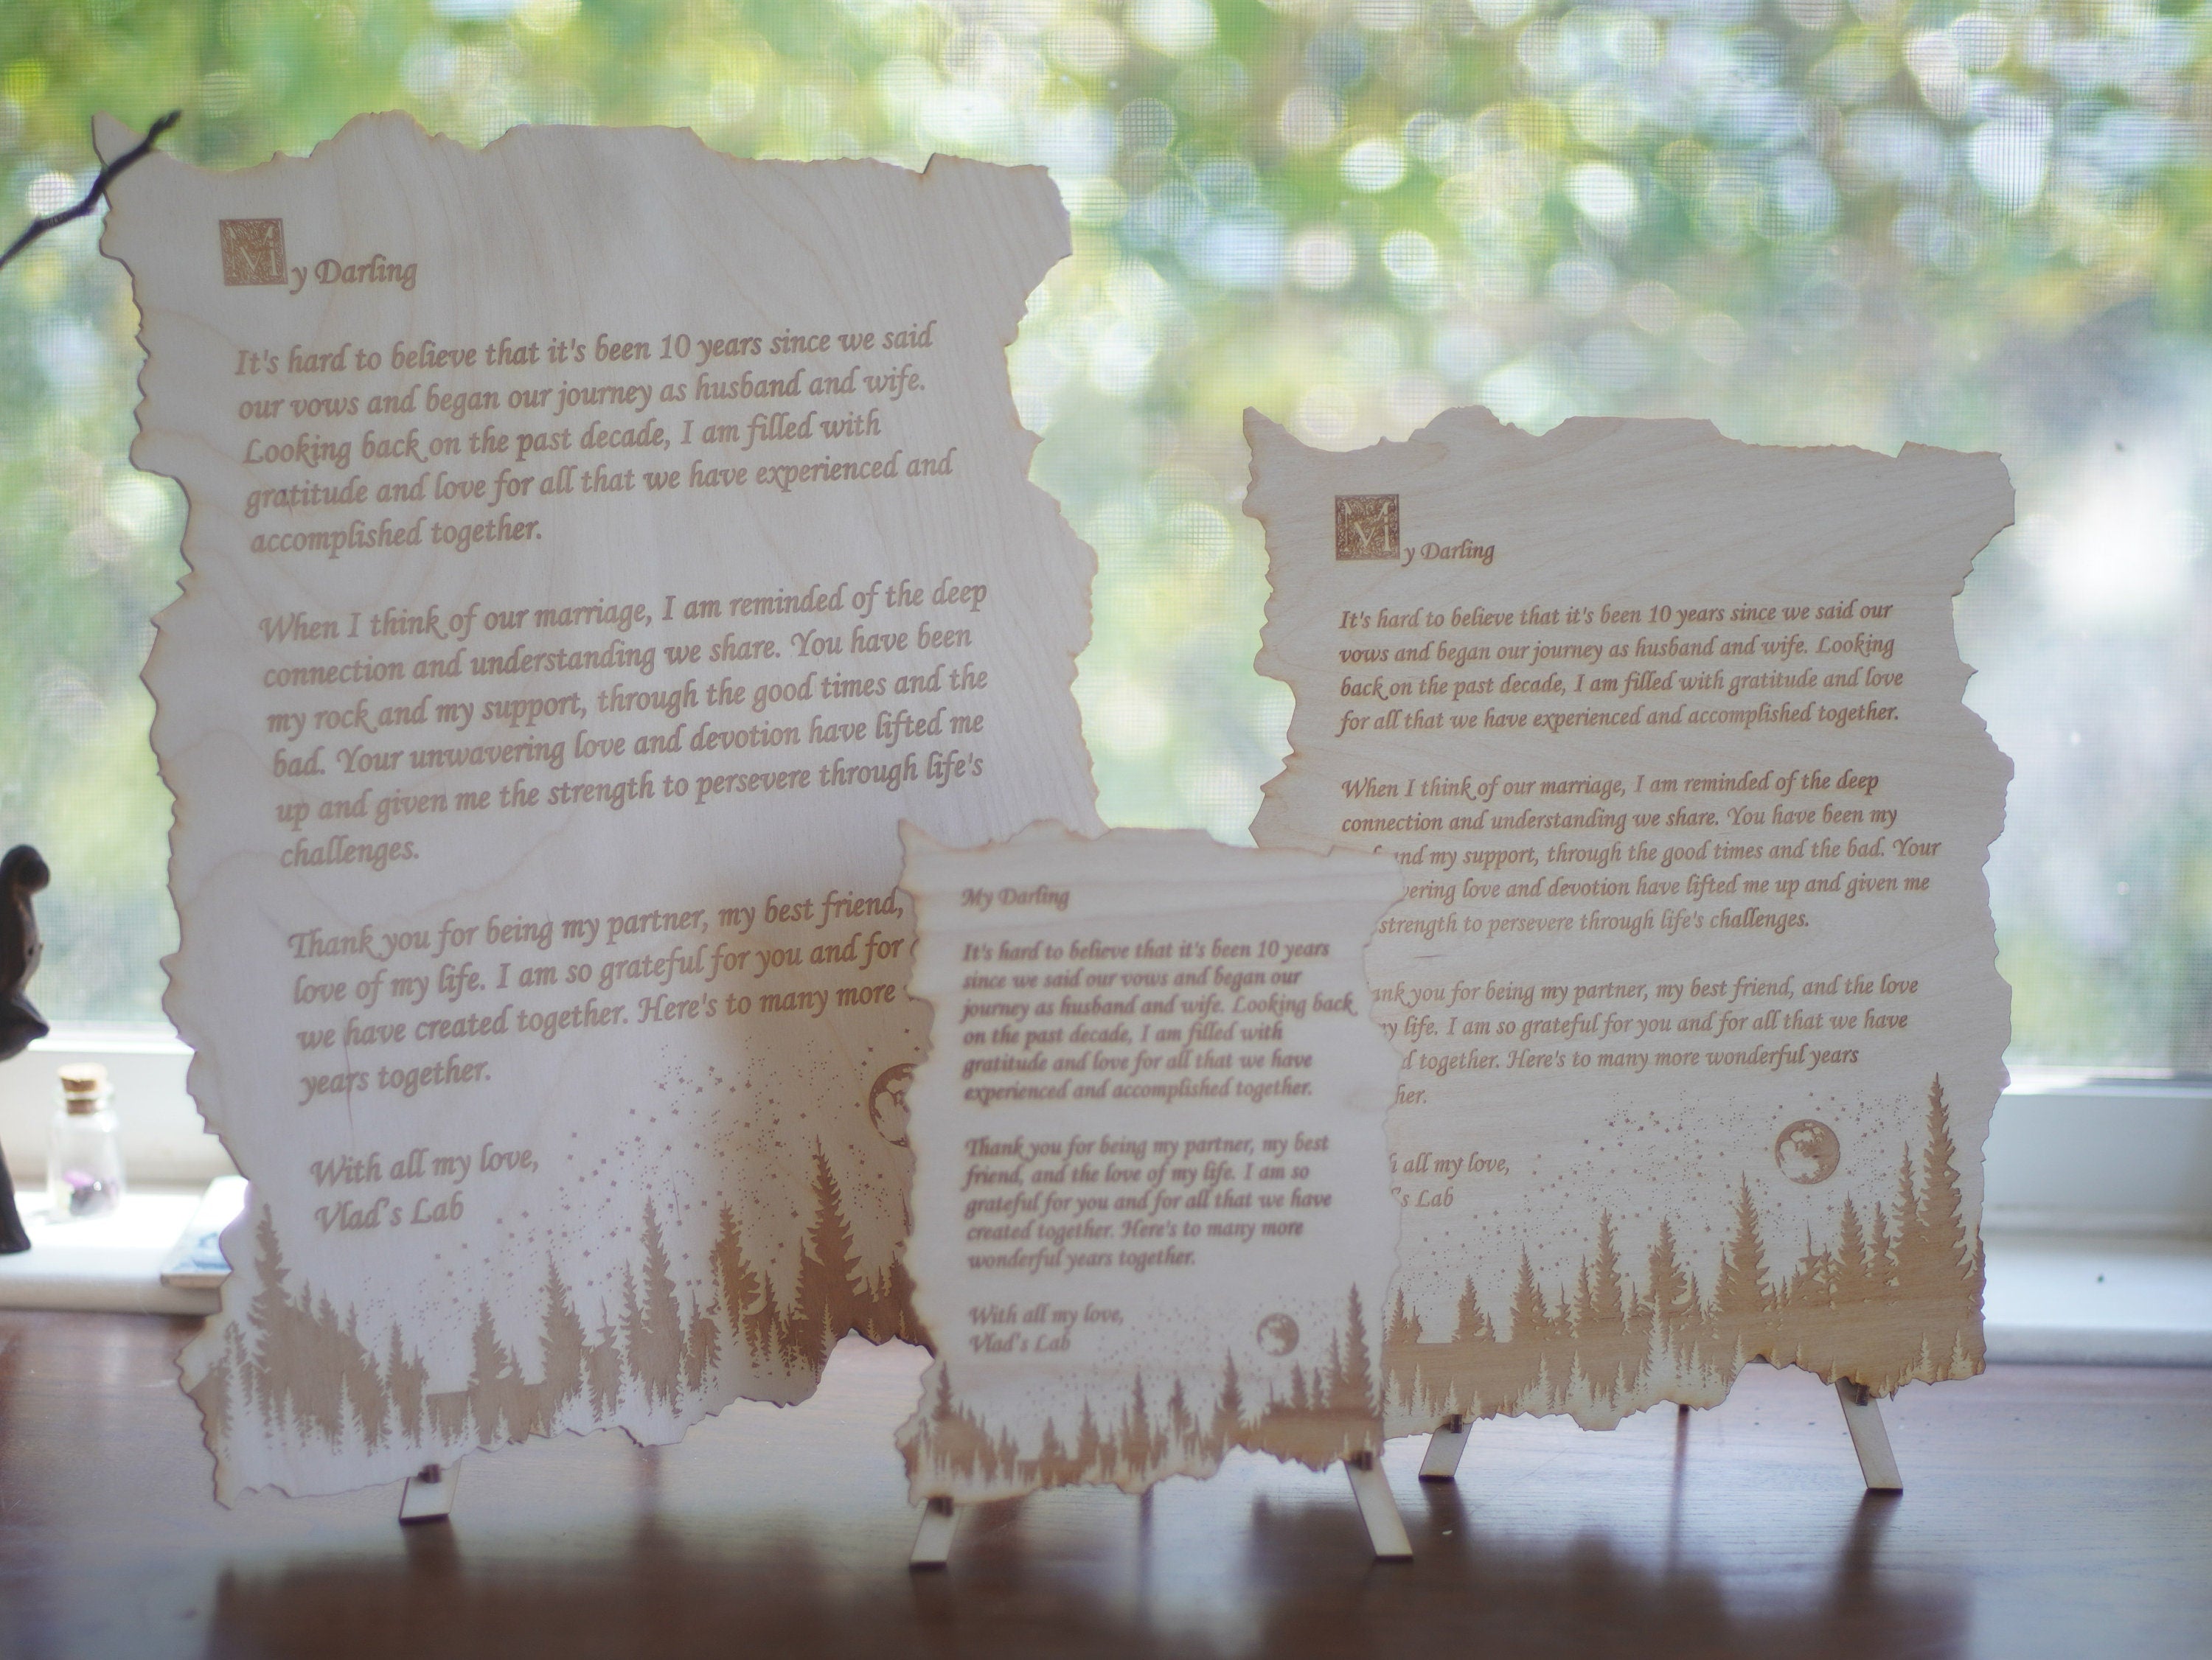 My Darling
It's hard to believe that it's been 10 years since we said
our vows and began our journey as husband and wife.
Looking back on the past decade, I am filled with
gratitude and love for all that we have experienced and
accomplished together.
When I think of our marriage, I am reminded of the deep
connection and understanding we share. You have been
my rock and my support, through the good times and the
bad. Your unwavering love and devotion have lifted me
up and given me the strength to persevere through life's
challenges.
Thank you for being my partner, my best friend,
love of my life. I am so grateful for you and for
we have created together. Here's to many more
years together.
With all my love,
Vlad's Lab
My Darling
It's hard to believe that it's been 10 years
since we said our vows and began our
journey as husband and wife. Looking back
on the past decade, I am filled with
gratitude and love for all that we have
experienced and accomplished together.
Thank you for being my partner, my best
friend, and the love of my life. I am so
grateful for you and for all that we have
created together. Here's to many more
wonderful years together.
With all my love,
Vlad's Lab
My Darling
It's hard to believe that it's been 10 years since we said our
vows and began our journey as husband and wife. Looking
back on the past decade, I am filled with gratitude and love
for all that we have experienced and accomplished together.
When I think of our marriage, I am reminded of the deep
connection and understanding we share. You have been my
and my support, through the good times and the bad. Your
love and devotion have lifted me up and given me
strength to persevere through life's challenges.
you for being my partner, my best friend, and the love
my life. I am so grateful for you and for all that we have
together. Here's to many more wonderful years
all my love,
Lab